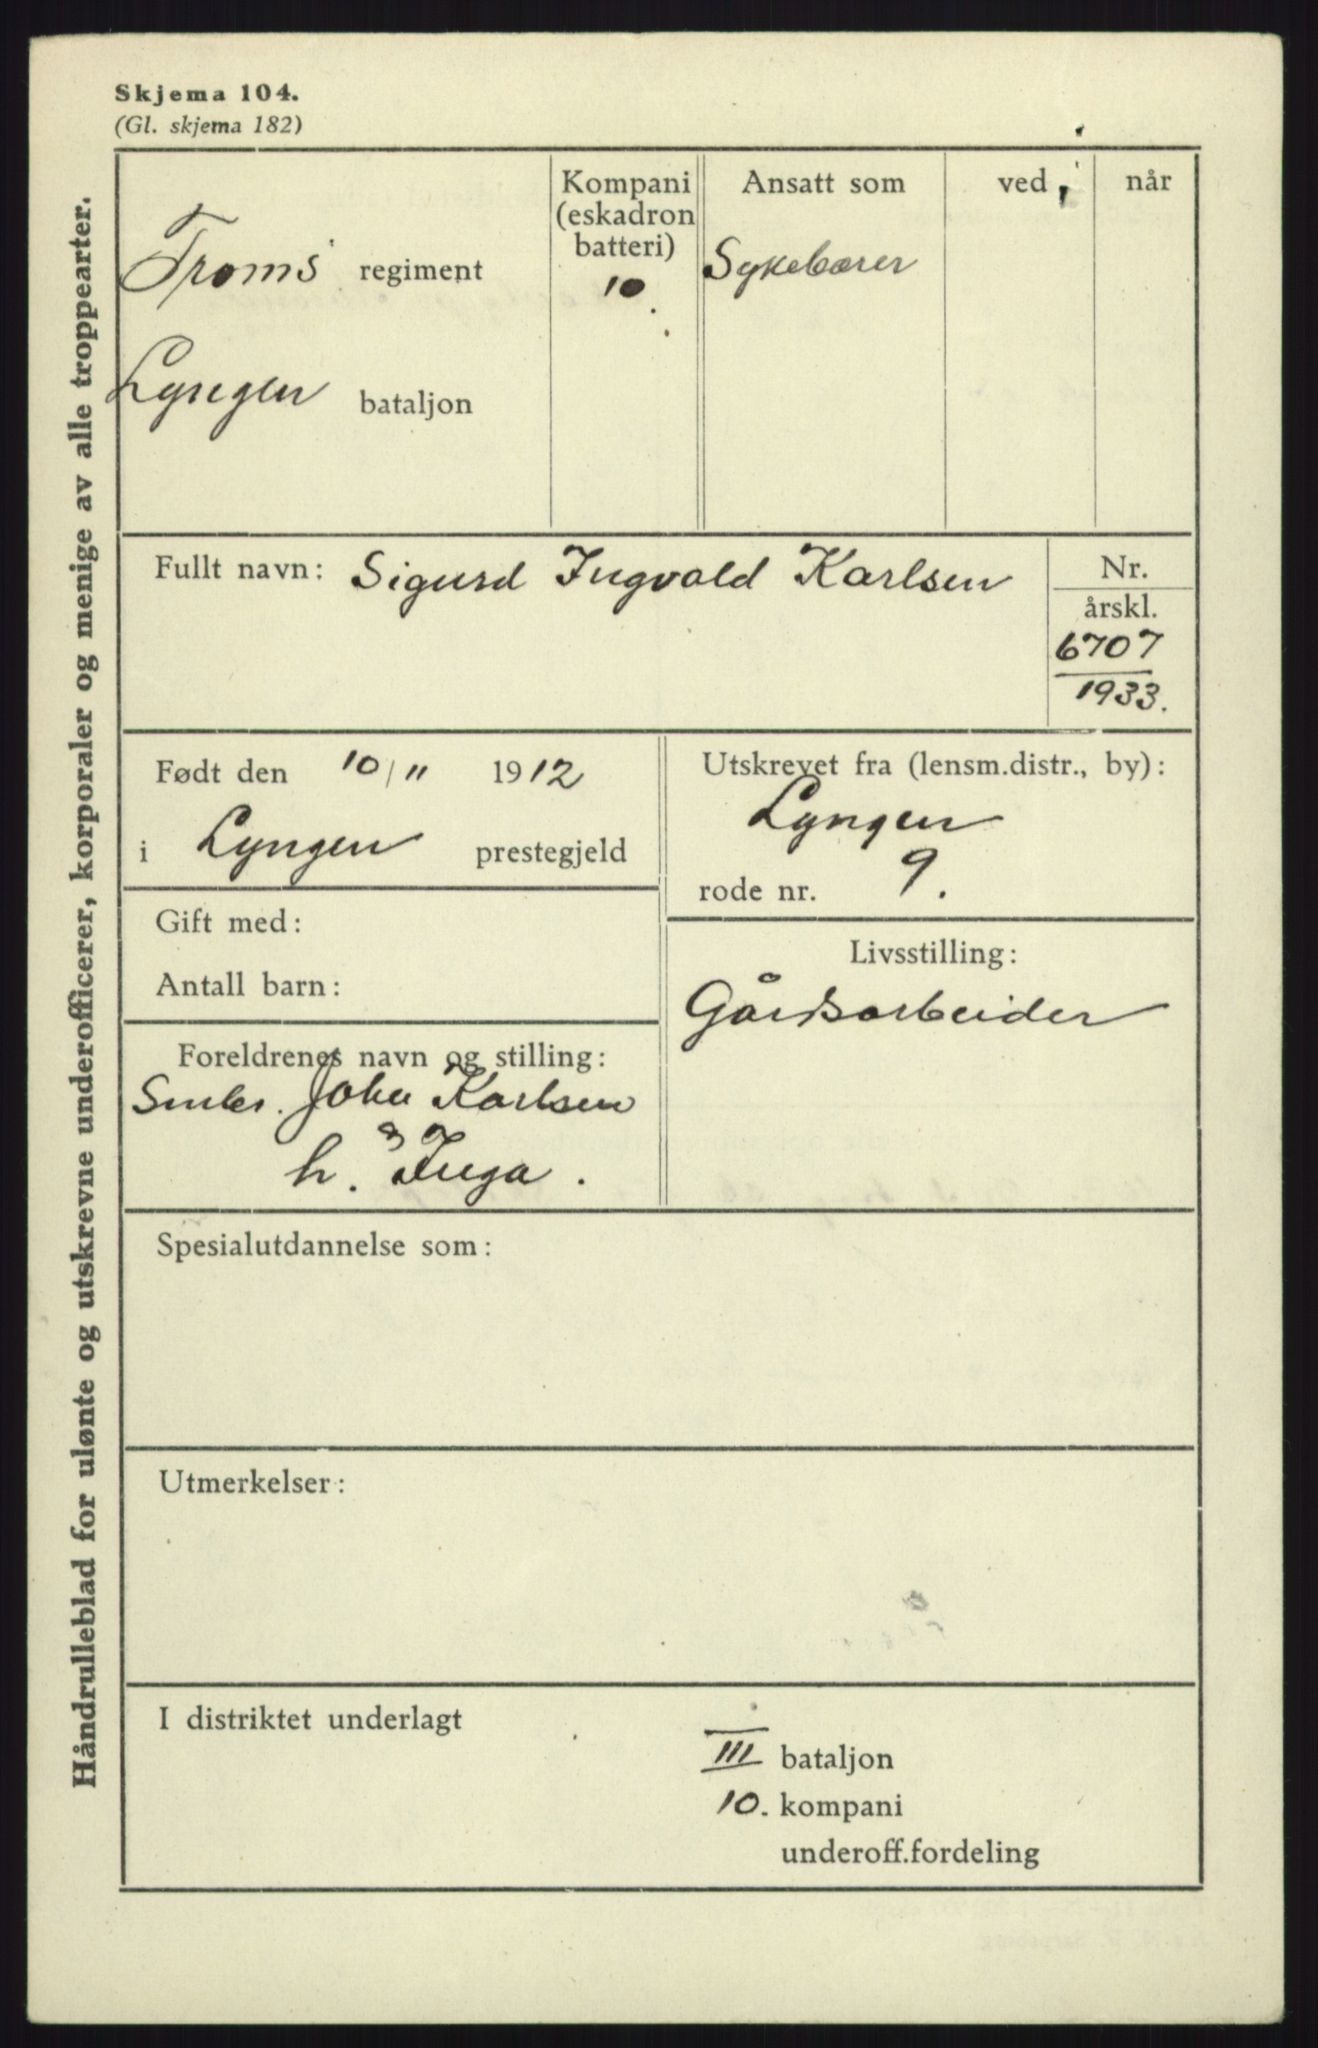 Skjema 104.
(Gl. skjema 182)
Håndrulleblad for ulønte og utskrevne underofficerer, korporaler og menige av alle troppearter.
Troms regiment
Lyngen bataljon
Kompani
(eskadron
batteri)
10.
Ansatt som
Sykebærer
ved
når
Fullt navn: Sigurd Ingvald Karlsen
Nr.
årskl.
6707
1933.
Født den 10/11 1912
i Lyngen prestegjeld
Utskrevet fra (lensm.distr., by):
Lyngen
rode nr. 9.
Gift med:
Antall barn:
Livsstilling:
Gårdsarbeider
Foreldrenes navn og stilling:
Småbr. Johan Karlsen
h. Inga.
Spesialutdannelse som:
Utmerkelser:
I distriktet underlagt
III bataljon
10. kompani
underoff.fordeling